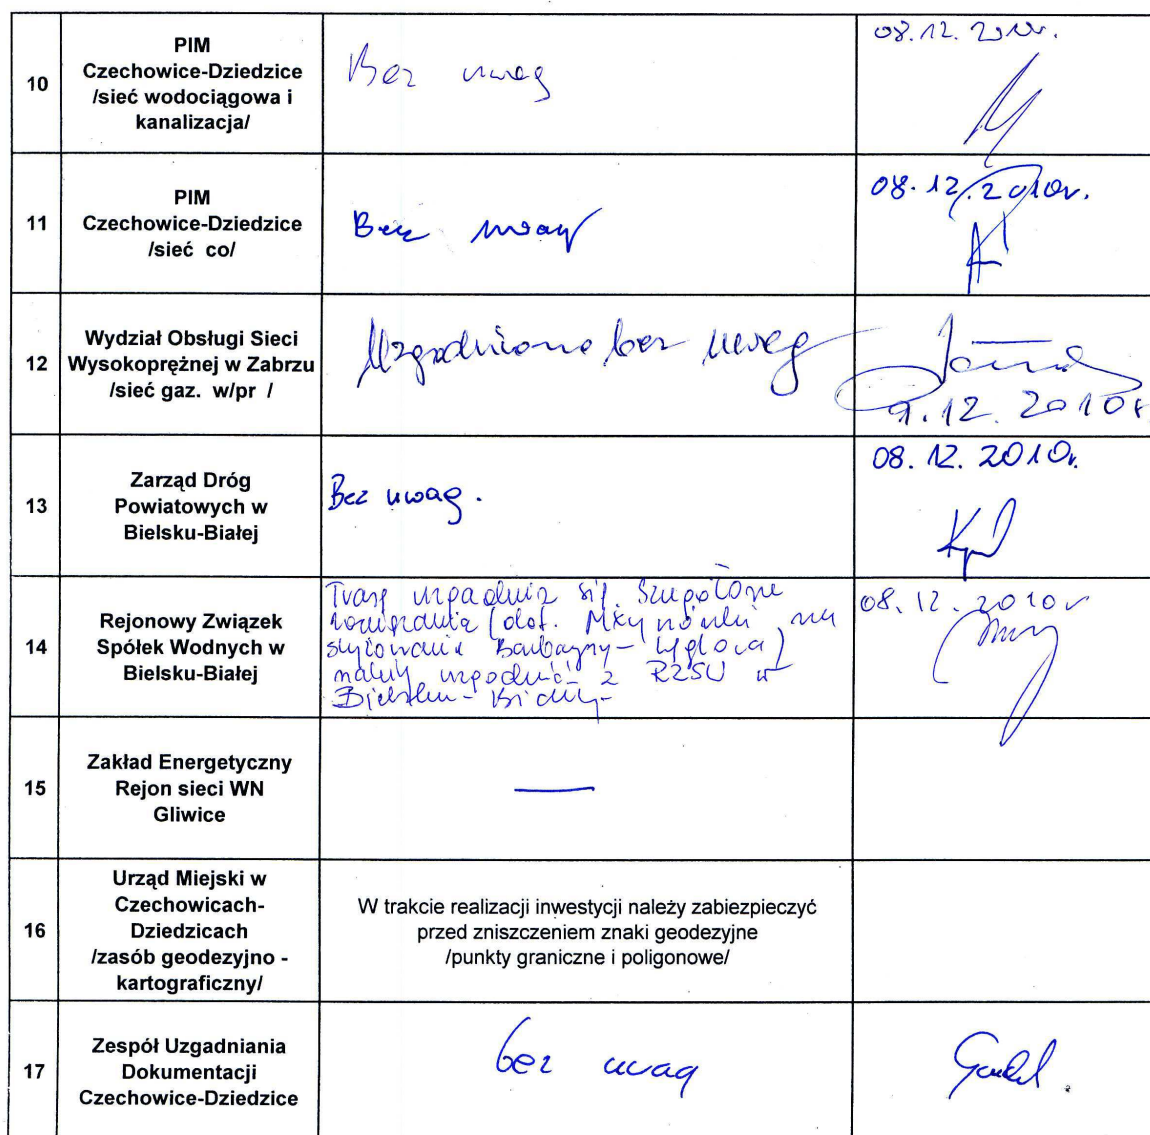 10
PIM
Czechowice-Dziedzice
/sieć wodociągowa i
kanalizacja/
Bez uwag
08.12.2010r.
11
PIM
Czechowice-Dziedzice
/sieć co/
Bez uwag
08.12.2010r.
12
Wydział Obsługi Sieci
Wysokoprężnej w Zabrzu
/sieć gaz. w/pr /
Uzgodniono bez uwag
9.12.2010r
13
Zarząd Dróg
Powiatowych w
Bielsku-Białej
Bez uwag.
08.12.2010r.
14
Rejonowy Związek
Spółek Wodnych w
Bielsku-Białej
Trasę uzgadnia się. Szczegółowe
rozwiązania (dot. na
należy uzgodnić z RZSW w
Bielsku-Białej-
08.12.2010r
15
Zakład Energetyczny
Rejon sieci WN
Gliwice
16
Urząd Miejski w
Czechowicach-
Dziedzicach
/zasób geodezyjno -
kartograficzny/
W trakcie realizacji inwestycji należy zabiezpieczyć
przed zniszczeniem znaki geodezyjne
/punkty graniczne i poligonowe/
17
Zespół Uzgadniania
Dokumentacji
Czechowice-Dziedzice
bez uwag